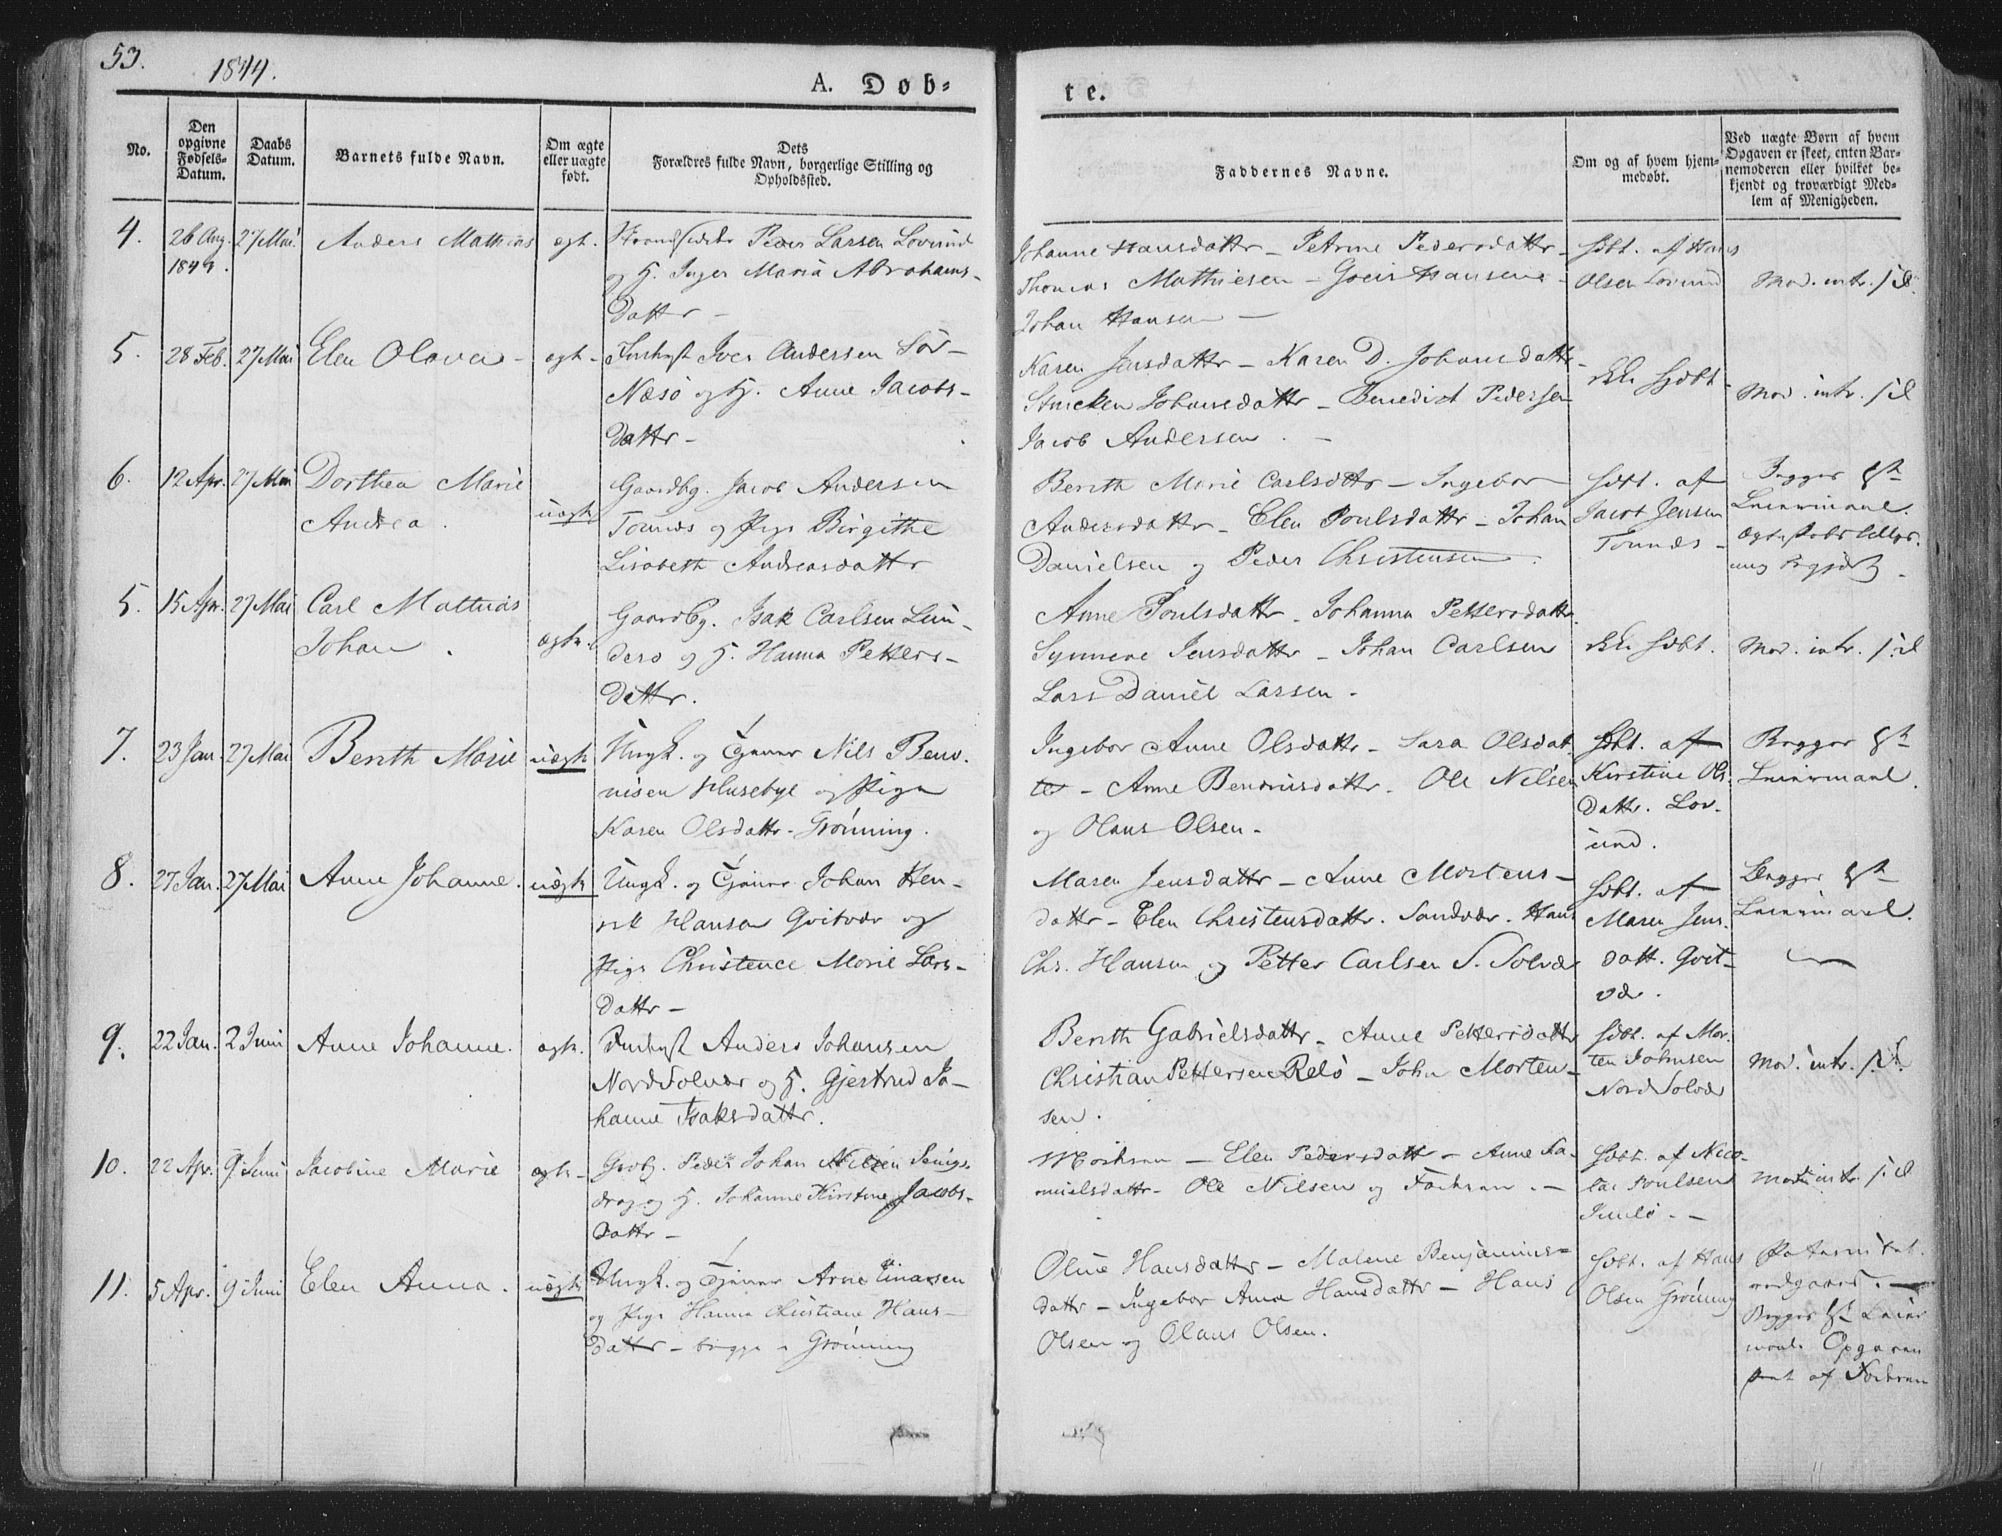 53.
1844.
A. Døb-
te.
No.
Den opgivne Fødsels-Datum.
Daabs Datum.
Barnets fulde Navn.
Om ægte eller uægte født.
Dets Forældres fulde Navn, borgerlige Stilling og Opholdssted.
Faddernes Navne.
Om og af hvem hjem-medøbt.
Ved uægte Børn af hvem Opgaven er skeet, enten Bar-nemoderen eller hvilket be-kjendt og troværdigt Med-lem af Menigheden.
4. 26 Aug. 1843. 27 Mai. Anders Mathias ægt.
Strandsidder Peder Larsen Lovund
og H. Inger Maria Abrahams-
Dattr -
Johanne Hansdattr - Petrine Pedersdattr -
Thomas Mathiesen - Hansen -
Johan Hansen -
Hdbt. af Hans
Olsen Lovund
Mod. intr. s. d.
5. 28 Feb. 27 Mai Elen Olava - ægt.
Indhyst Iver Andersen Sör-
Næsö og H. Anne Jacobs-
Dattr -
Karen Jensdattr - Karen D. Johansdattr -
Johansdattr - Benedict Pedersen
Jacob Andersen. -
Hdbt.
Mod. intr. s. d.
6. 12 Apr. 27 Mai Dorthea Marie
Andrea. uægt.
Gaardbg. Jacob Andersen
Tonnes og Pige Birgithe
Lisabeth Andreasdattr
Berith Marie Carlsdttr - Ingebor
Andersdattr - Elen Poulsdattr - Johan
Danielsen og Peder Christensen.
Hdbt. af
Jacob Jensen
Tonnes -
Begges 1ste
Leiermaal.
5. 15 Apr. 27 Mai Carl Mathias
Johan. ægt.
Gaardbg. Isak Carlsen Lun-
derö og H. Hanna Petters-
Dattr.
Anne Poulsdattr - Johanna Pettersdattr.
Synnene Jensdattr - Johan Carlsen
Lars Daniel Larsen -
Hdbt.
Mod. intr. s. d.
7. 23 Jan. 27 Mai Berith Marie uægt.
Ungk. og Tjener Nils Benv.
nisen Husebye og Pige
Karen Olsdattr - Grönning.
Ingebor Anne Olsdattr - Sara Olsdat-
ter - Anne Dattr. Ole Nilsen
og Olaus Olsen -
Hdbt. af
Kirstine Ols-
dattr. Lov-
und.
Begges 1ste
Leiermaal.
8. 27 Jan. 27 Mai Anne Johanne. uægt
Ungk. og Tjener Johan Hen-
rik Hansen Qvitvær og
Pige Christence Marie Lars-
Dattr -
Maren Jensdattr - Anne Mortens-
dattr - Elen Christensdattr. Sandvær. Hans
Chr. Hansen og Petter Carlsen S. Solvær
Hdbt. af
Maren Jens-
datt. Qvit-
vær.
Begges 1ste
Leiermaal.
9. 22 Jan. 2 Juni Anne Johanne. ægt.
Indhyst Anders Johansen
Nord Solvær og H. Gjertrud Jo-
hanne Isaksdattr.
Berith Gabrielsdattr - Anne Pettersdattr
Christian Pettersen Relö - John Morten-
sen.
Hdbt. af Mor-
ten Johnsen
Nord Solvær
Mod. intr. s. d.
10. 22 Apr. 9 Juni Jacobine Marie ægt.
Gbg. Peder Johan Nilsen Selings
drag og H. Johanne Kirstine Jacobs-
Dattr -
Moderen - Elen Pedersdattr - Anne Sa-
muelsdattr - Ole Nilsen og Faderen. -
Hdbt. af Nico-
lai Poulsen
Mod intr. s. d.
11. 5 Apr. 9 Juni Elen Anna. uægt.
Ungk. og Tjener Arne Einarsen
og Pige Hanna Christiane Hans-
Dattr - begge i Grönning
Oline Hansdattr - Malene Benjamins-
dattr - Ingebor Ana Hansdattr - Hans
Olsen og Olaus Olsen.
Hdbt. af Hans
Olsen Grönning
Paternitet.
vedgaaes. -
Begges 1ste Leier
maal. Opgaven
af Faderen